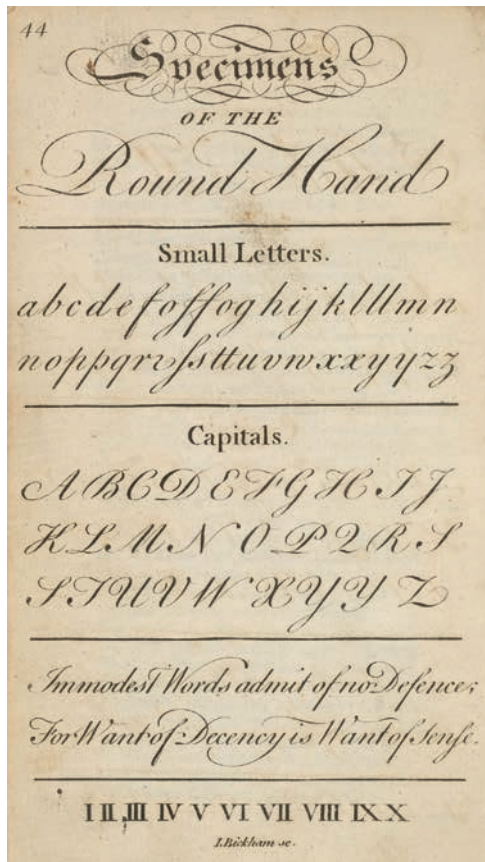 44
Specimens
OF THE
Round Hand
Small Letters.
abcdefoffoghijklllmn
noppqrsſsttuvwxxyyzz
Capitals.
ABCDEFGHIJ
KLMNOPQRS
STUVWXYYZ
Immodest Words admit of no Defence;
For Want of Decency is Want of Sense.
I II III IV V VI VII VIII IX X
I.Bickham sc.